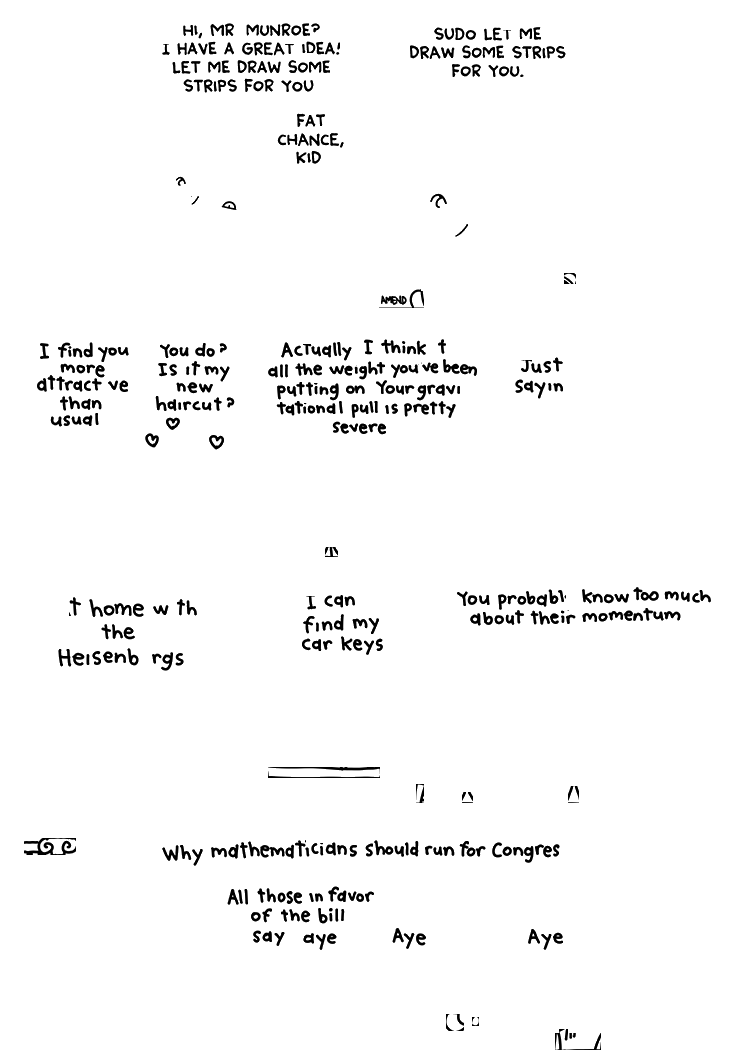 HI, MR MUNROE?
I HAVE A GREAT IDEA!
LET ME DRAW SOME
STRIPS FOR YOU
FAT
CHANCE,
KID
SUDO LET ME
DRAW SOME STRIPS
FOR YOU.
AMEND
I find you
more
attract ve
than
usual
You do?
Is it my
new
haircut?
Actually I think t
all the weight you ve been
putting on Your gravi
tational pull is pretty
severe
Just
sayin
t home w th
the
Heisenb rgs
I can
find my
car keys
You probabl know too much
about their momentum
Why mathematicians should run for Congres
All those in favor
of the bill
say aye
Aye
Aye